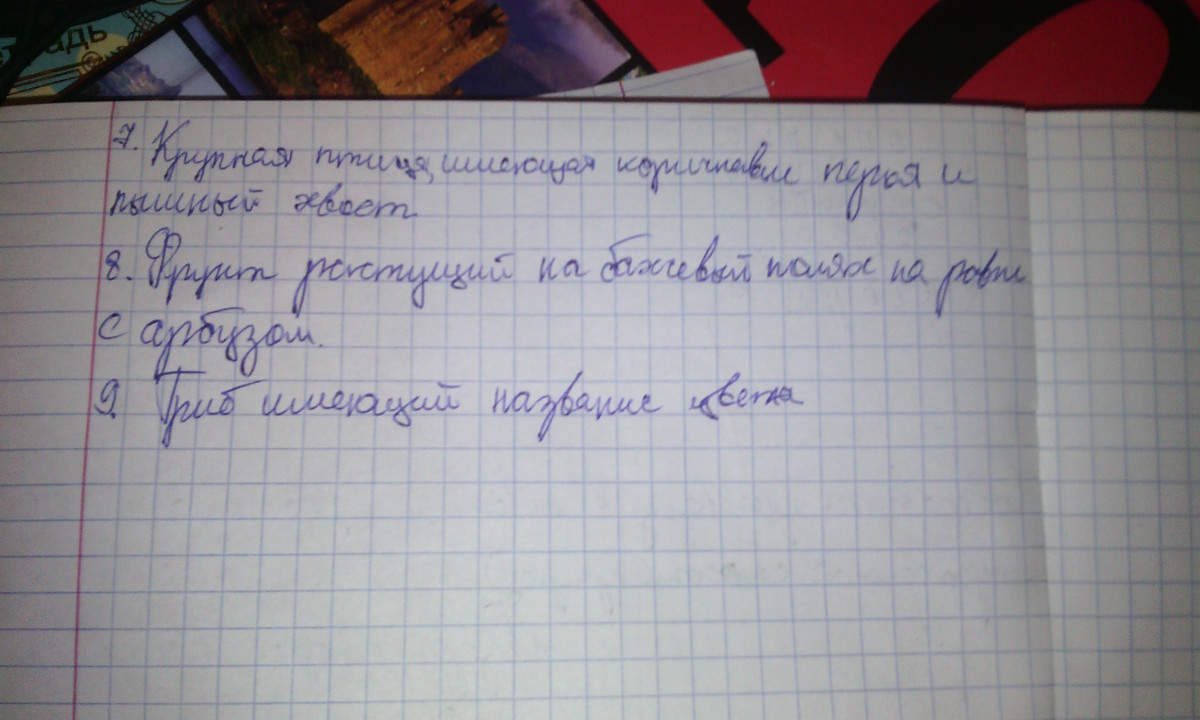 адь
7. Крупная птица, имеющая коричневые перья и
пышный хвост
8. Фрукт растущий на бахчевый полях на ровне
с арбузом.
9. Гриб имеющий название цветка